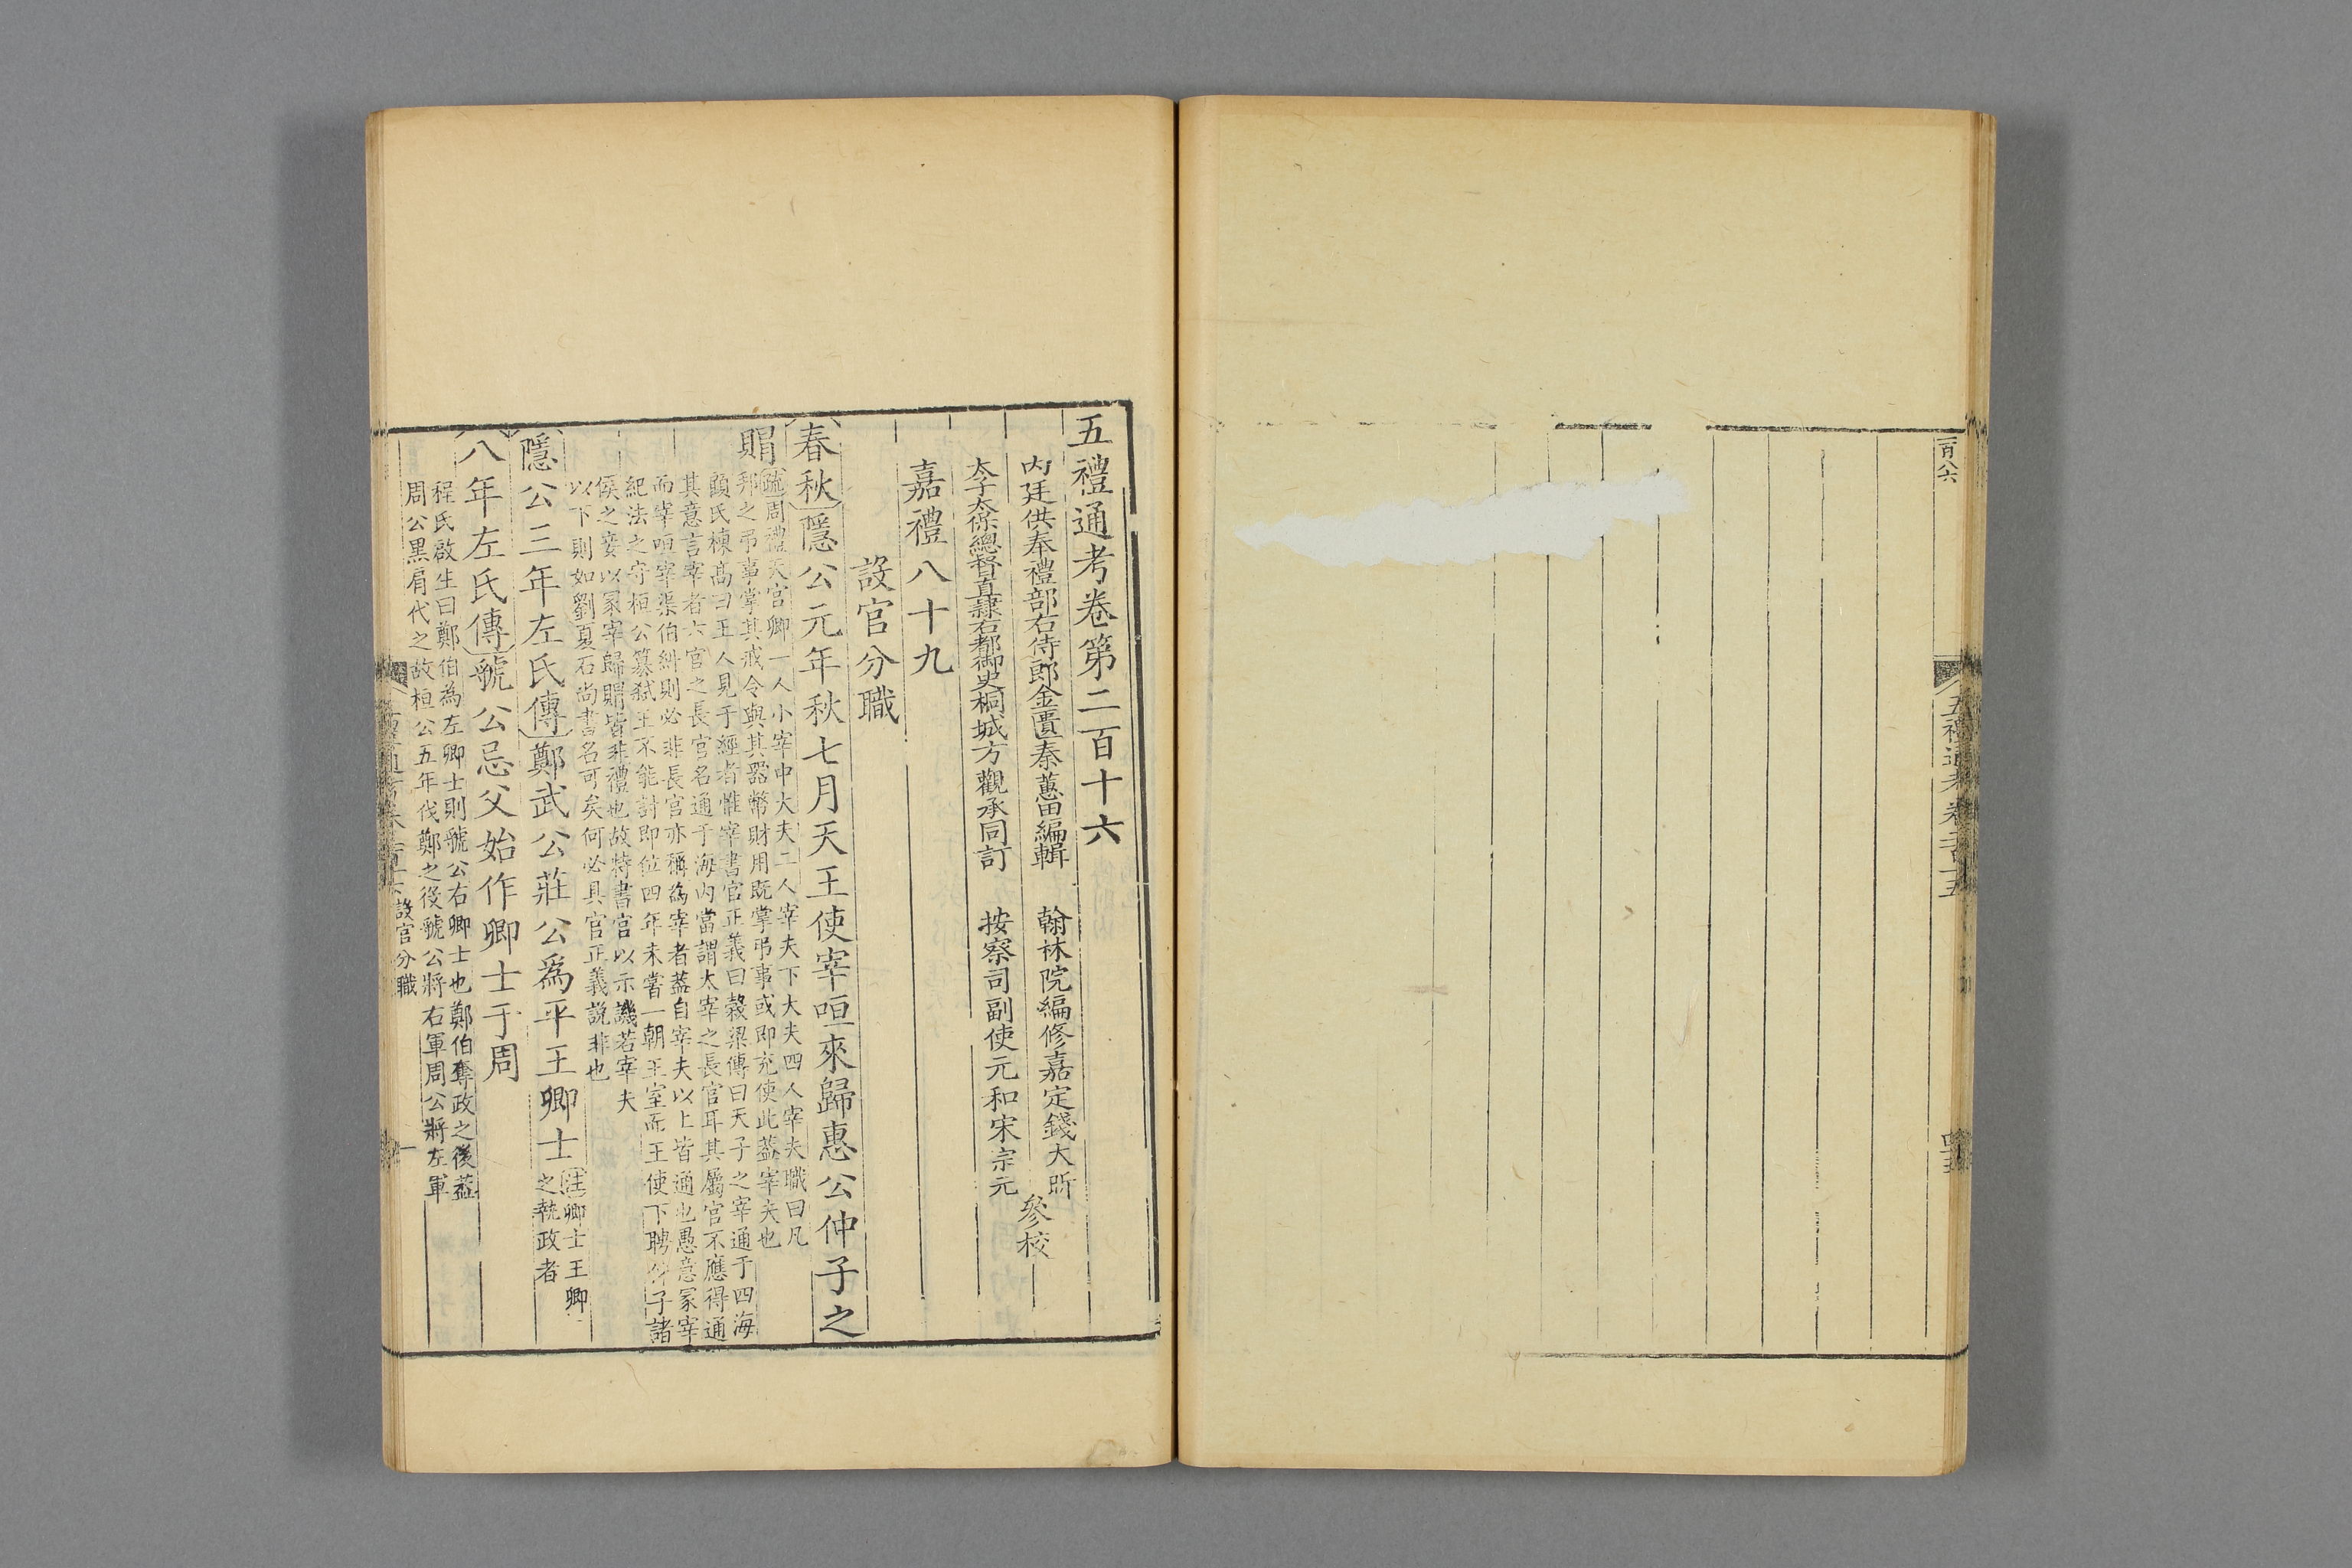 一百八六
五禮通考卷二百十五
五禮通考卷第二百十六
內廷供奉禮部右侍郎金匱秦蕙田編輯 翰林院編修嘉定錢大昕
太子太保總督直隸右都御史桐城方觀承同訂 按察司副使元和宋宗元
參校
嘉禮八十九
設官分職
春秋隱公元年秋七月天王使宰咺來歸惠公仲子之
賵
疏周禮天官卿一人小宰中大夫二人宰夫下大夫四人宰夫職曰凡
邦之弔事掌其戒令與其器幣財用既掌弔事或即充使此葢宰夫也
顧氏棟高曰王人見于經者惟宰書官正義曰榖梁傳曰天子之宰通于四海
其意言宰者六官之長官名通于海內當謂太宰之長官耳其屬官不應得通
而宰咺宰渠伯糾則必非長官亦稱為宰者葢自宰夫以上皆通也愚意冢宰
紀法之守桓公篡弒王不能討即位四年未嘗一朝王室而王使下聘仲子諸
侯之妾以冢宰歸賵皆非禮也故特書官以示譏若宰夫
以下則如劉夏石尚書名可矣何必具官正義説非也
隱公三年左氏傳鄭武公莊公爲平王卿士
注卿士王卿
之執政者
八年左氏傳虢公忌父始作卿士于周
程氏啟生曰鄭伯為左卿士則虢公右卿士也鄭伯奪政之後葢
周公黑肩代之故桓公五年伐鄭之役虢公將右軍周公將左軍
設官分職
一